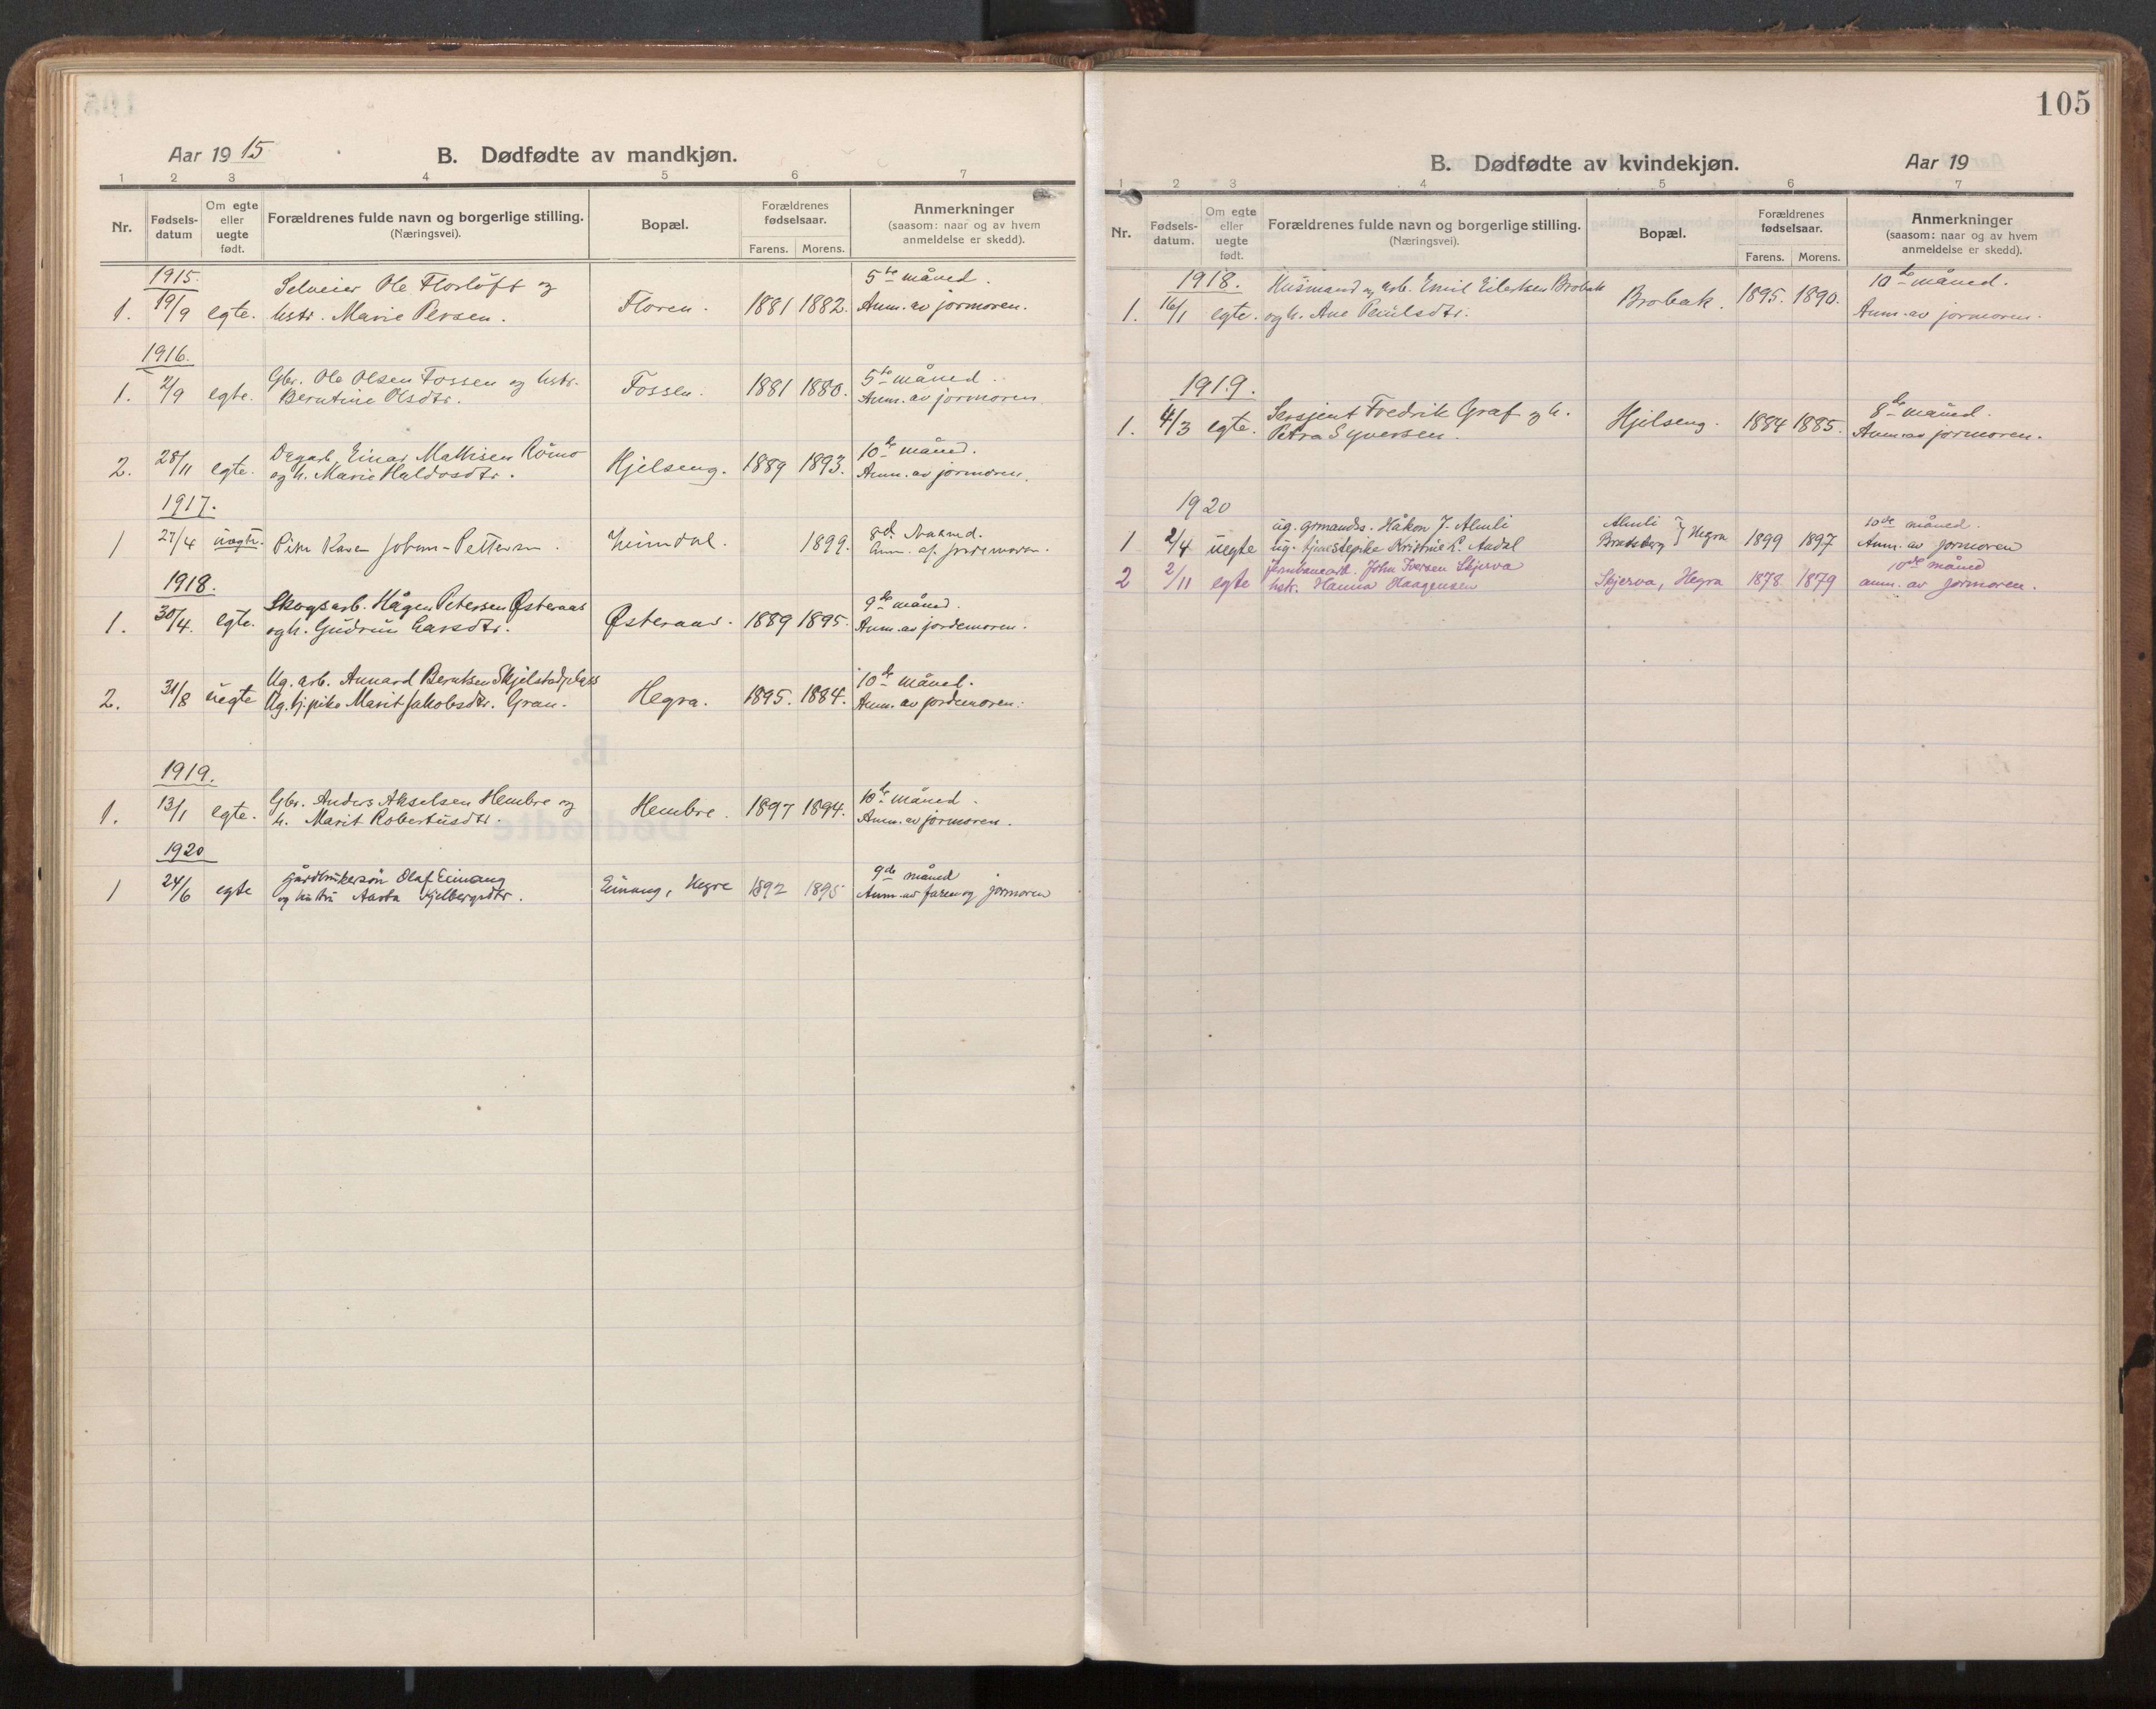 Aar 1915
B. Dødfødte av mandkjøn.
1 2 3 4 5 6 7
Nr. Fødsels-datum Om egte eller uegte født. Forældrenes fulde navn og borgerlige stilling. (Næringsvei). Bopæl. Forældrenes fødselsaar. Farens. Morens. Anmerkninger (saasom: naar og av hvem anmeldelse er skedd).
1915.
Selveier Ole Florloft og 5te måned.
1. 19/9 egte. hstr. Marie Persen. Floren. 1881 1882. Anm. av jormoren.
1916.
Gbr. Ole Olsen Fossen og hstr. 5te måned.
1. 2/9 egte. Berntine Olsdtr. Fossen. 1881 1880. Anm. av jormoren
Dagarb. Einar Mathisen Römo 10de måned.
2. 28/11 egte. og h. Marie Haldosdtr. Hjelseng. 1889 1893. Anm. av jormoren.
1917.
8de Maaned.
1 27/4 uegte. Pike Karen Johan-Pettersen. 1899. Anm. af jordemoren.
1918.
Skogsarb. Hågen Petersen Østeraas 9de måned.
1. 30/4. egte. og h. Gudrun Larsdtr. Østeraas. 1889 1895. Anm. av jordemoren.
Ug. arb. Annard Berntsen Skjelstadplass 10de måned.
2. 31/8 uegte Ug. tj.pike Marit Jakobsdtr. Gran. Hegra. 1895. 1884. Anm. av jordemoren.
1919.
Gbr. Anders Akselsen Hembre og 10de måned.
1. 13/1 egte. h. Marit Robertusdtr. Hembre. 1897 1894. Anm. av jormoren.
1920
Gårdbrukersøn Olaf Einang 9de måned
1 24/6 egte og hustru Aasta Kjelbergsdtr. Einang, Hegre 1892 1895 Anm. av faren og jormoren
105
B. Dødfødte av kvindekjøn.
Aar 19
1 2 3 4 5 6 7
Nr. Fødsels-datum. Om egte eller uegte født. Forældrenes fulde navn og borgerlige stilling. (Næringsvei). Bopæl. Forældrenes fødselsaar. Farens. Morens. Anmerkninger (saasom: naar og av hvem anmeldelse er skedd).
1918. Husmand og arb. Emil Eilertsen Brobak 10de måned.
1. 16/1 egte. og h. Ane Paulsdtr. Brobak. 1895. 1890. Anm. av jormoren.
1919.
Sersjent Fredrik Graf og h. 8de måned.
1. 4/3 egte. Petra Syversen. Hjelseng. 1884 1885. Anm. av jormoren.
1920
ug. grmandss. Håkon J. Almli Almli 10de måned.
1 2/4 uegte ug. tjenestepike Kristine L. Aadal Bradsberg } Hegra 1899 1897 Anm. av jormoren
jernbanearb. John Iversen Skjerva 10de måned
2 2/11 egte hstr. Hanna Haagensen Skjerva, Hegra 1878 1879 anm. av jormoren.